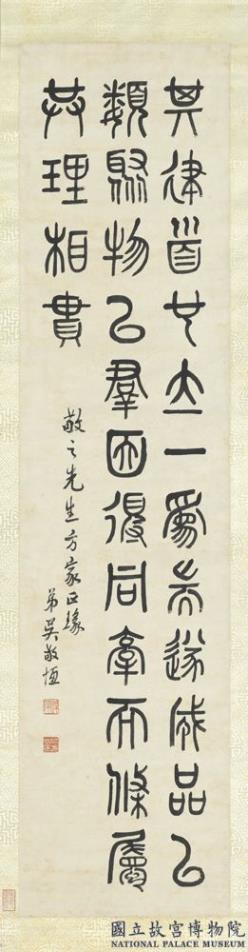 其建首也立一為耑遂成品以
類聚物以羣因復同牽而條屬
共理相貫
敬之先生方家正
弟吳敬恆
國立故宮博物院
NATIONAL PALACE MUSEUM